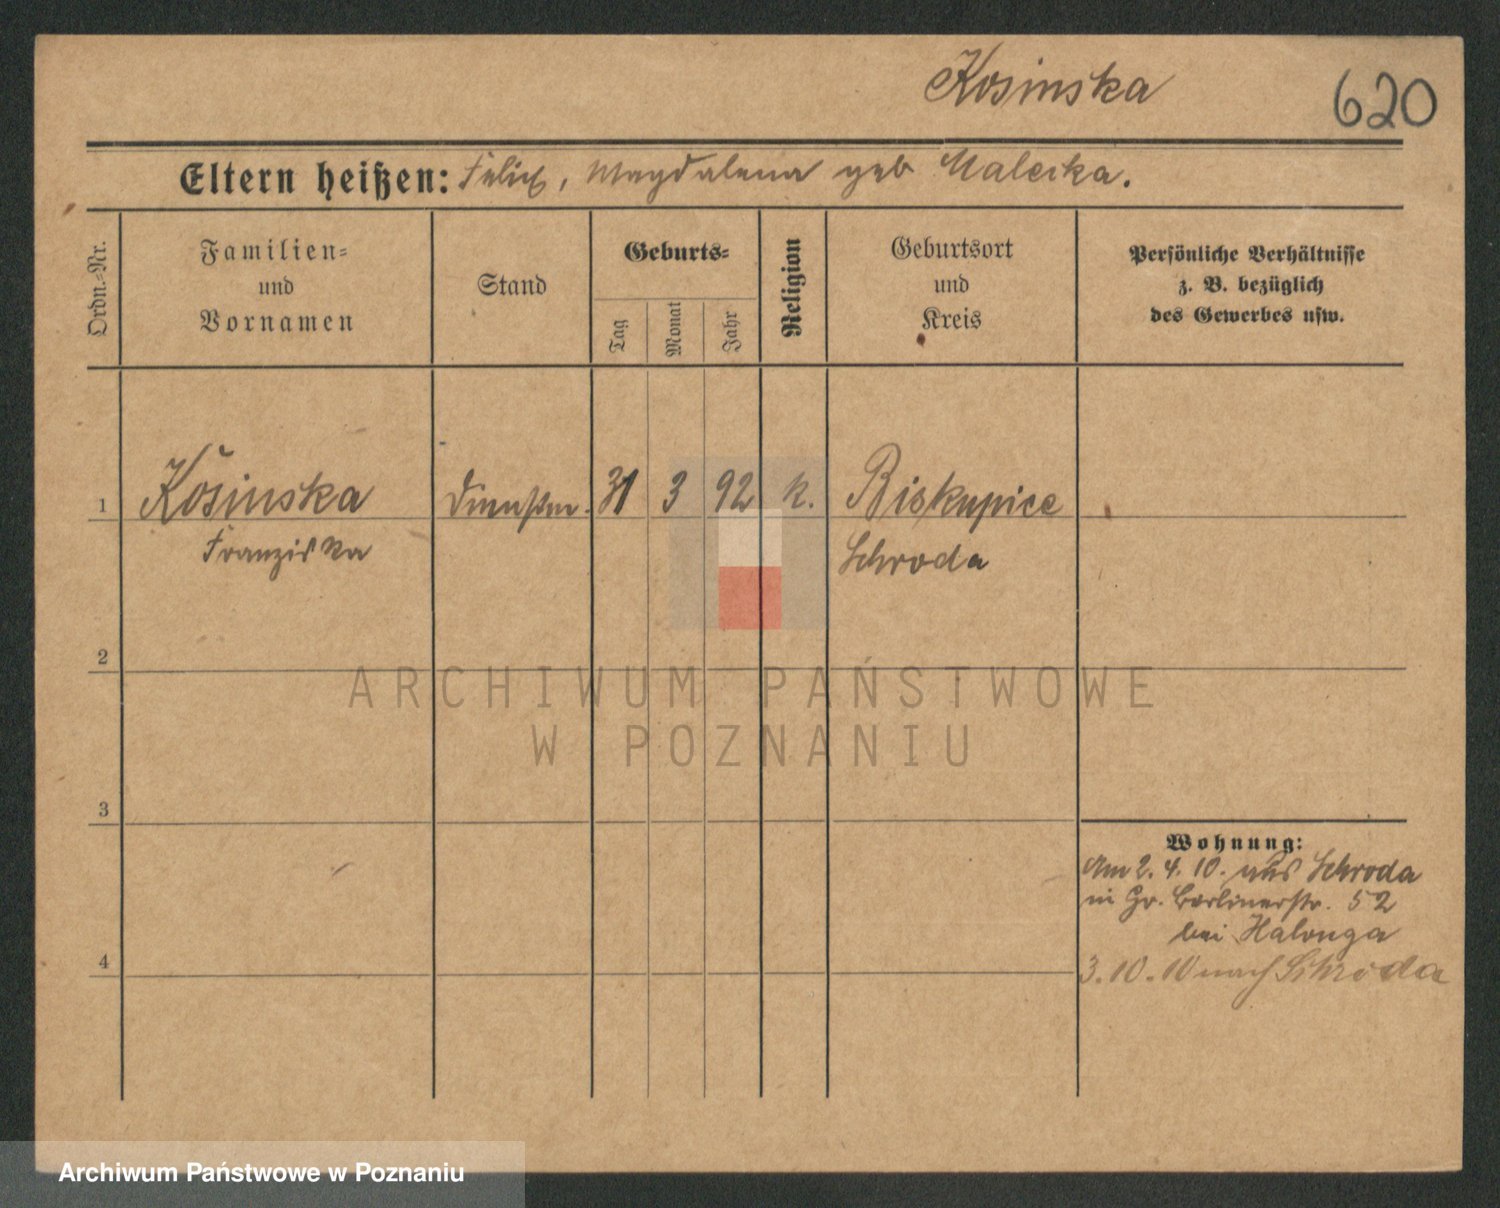 Kosinska
620
Eltern heißen: Felix, Magdalena geb Malecka.
Ordn.-Nr.
Familien-
und
Vornamen
Stand
Geburts-
Tag
Monat
Jahr
Religion
Geburtsort
und
Kreis
Persönliche Verhältnisse
z. B. bezüglich
des Gewerbes usw.
1 Kosinska 31 3 92 k. Biskupice
Franziska Schroda
2
ARCHIWUM PAŃSTWOWE
W POZNANIU
3
Wohnung:
Am 2. 4. 10. aus Schroda
in Gr. Berlinerstr. 52
bei Halonga
4
3. 10. 10 nach Schroda
Archiwum Państwowe w Poznaniu